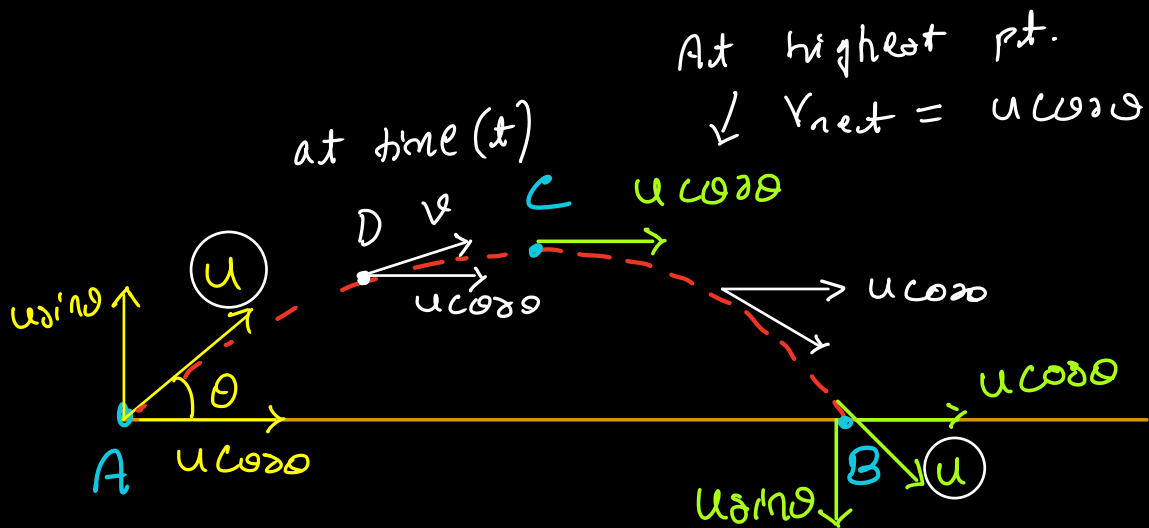 At highest pt.
↓ Vnet = u cosθ
at time (t)
C
u cosθ
D
v
u
u cosθ
usinθ
u cosθ
θ
u cosθ
A
u cosθ
B
u
usinθ